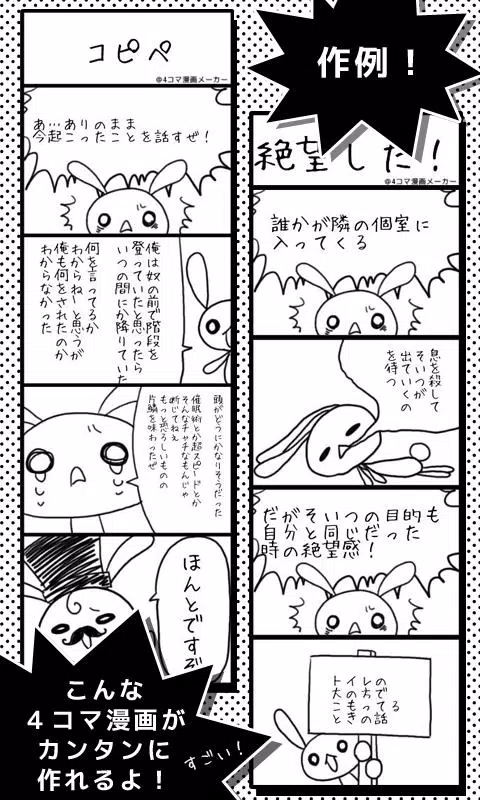 作例！
コピペ
@4コマ漫画メーカー
あ…ありのまま
今起こったことを話すぜ！
俺は奴の前で階段を
登っていたと思ったら
いつの間にか降りていた
何を言ってるか
わからねーと思うが
俺も何をされたのか
わからなかった
頭がどうにかなりそうだった
催眠術とか超スピードとか
そんなチャチなもんじゃ
断じてねえ
もっと恐ろしいものの
片鱗を味わったぜ
ほんとですぞ
絶望した！
@4コマ漫画メーカー
誰かが隣の個室に
入ってくる
息を殺して
そいつが
出ていくの
を待つ
だがそいつの目的も
自分と同じだった
時の絶望感！
トイレの
大の方で
このもってる
ときの話
こんな
４コマ漫画が
カンタンに
作れるよ！
すごい！